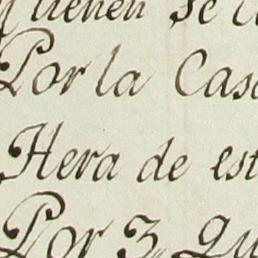 tienen Se
Por la Cas
Hera de est
Por 3 qu